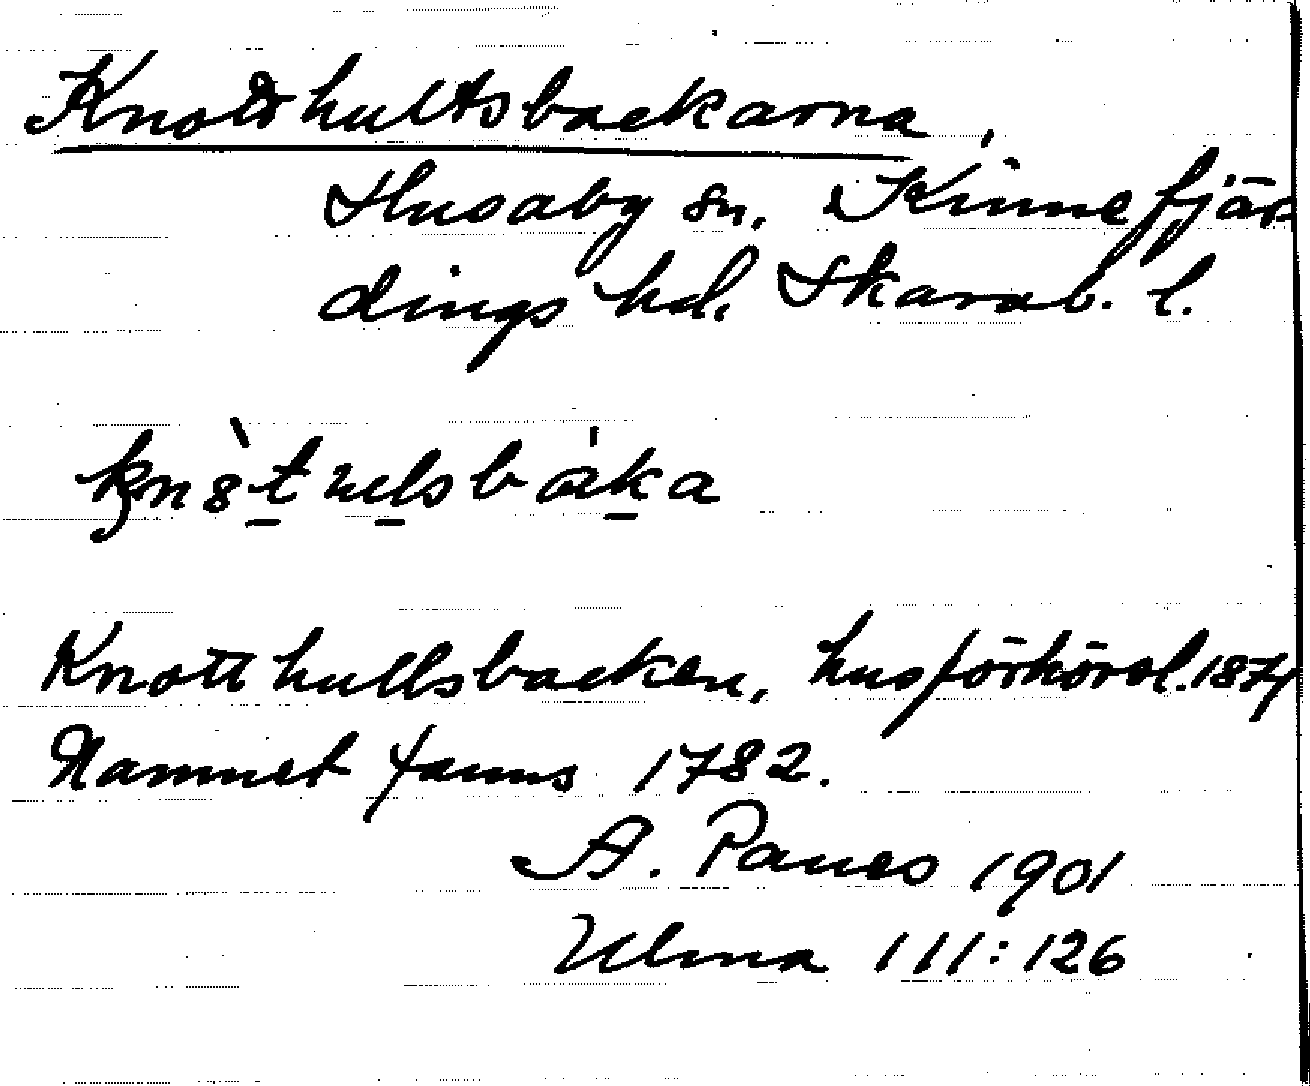 Knotthultsbackarna,
Husaby sn. Kinnefjär
dings hd. Skarab. l.
Knotthultsbacken, husförhörsl. 1874
Namnet fanns 1782.
A. Panes 1901
Ulma 111:126